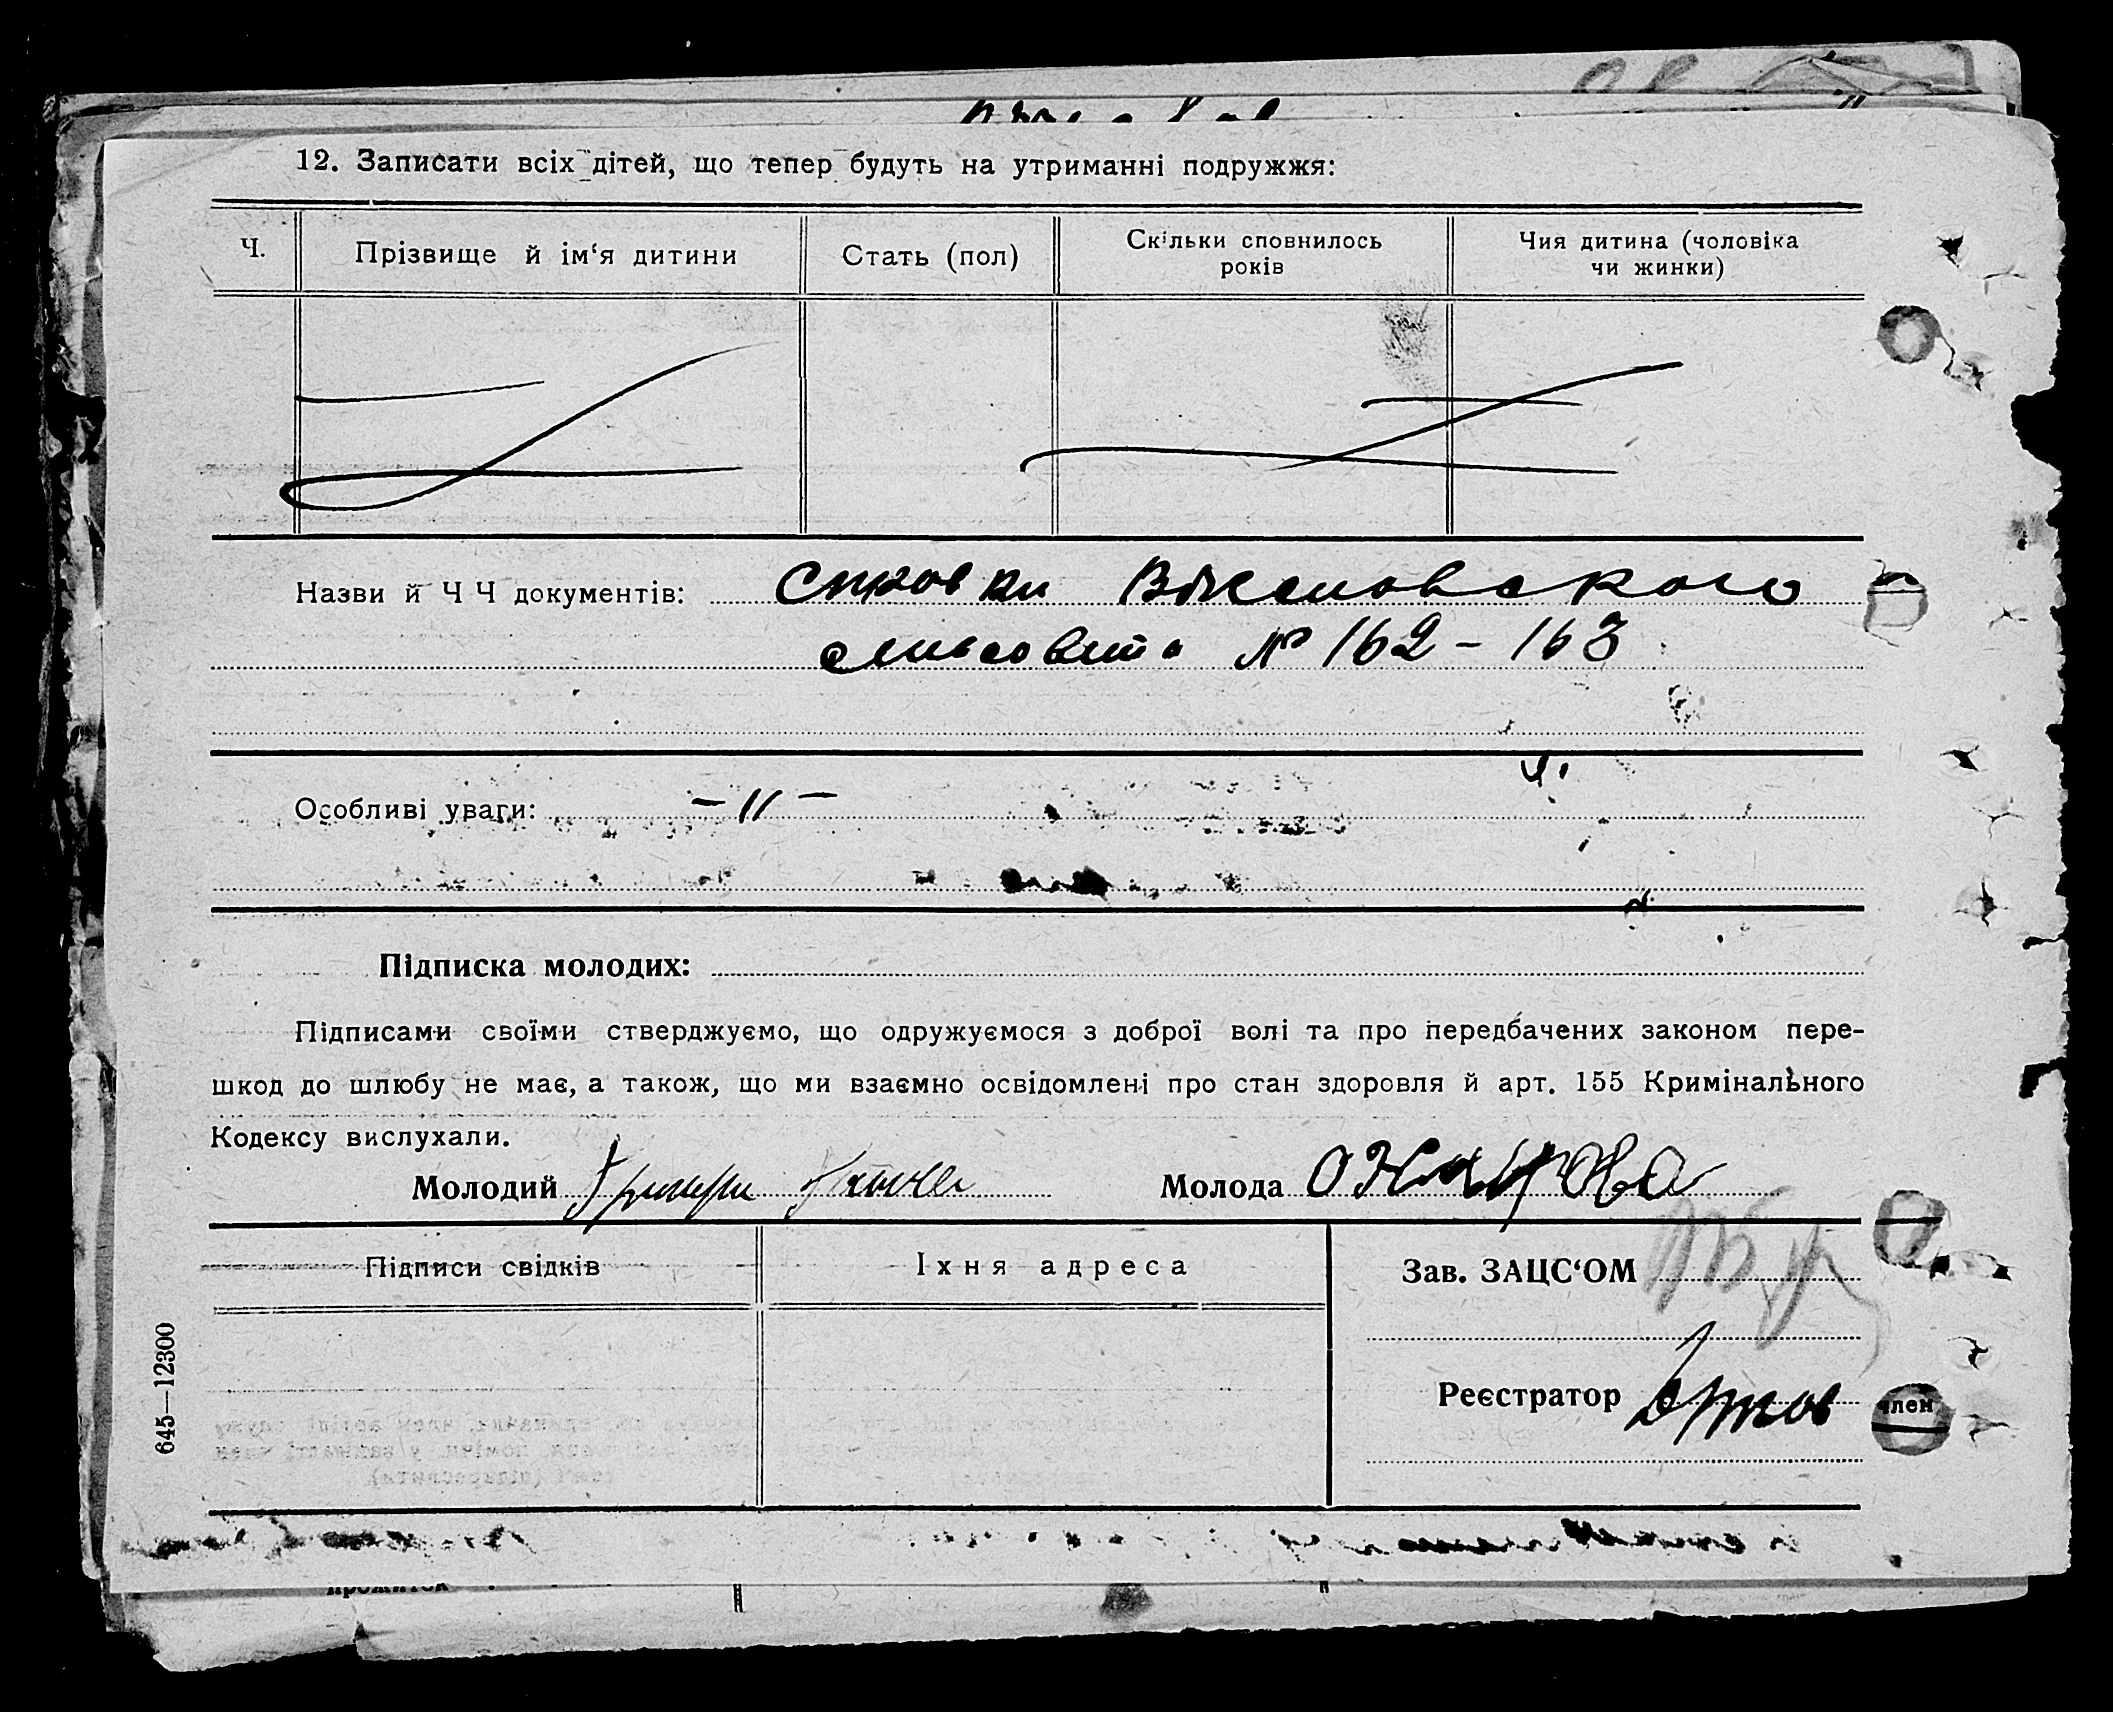 12. Записати всіх дітей, що тепер будуть на утриманні подружжя:
Ч.
Прізвище й ім‘я дитини
Стать (пол)
Скільки сповнилось
років
Чия дитина (чоловіка
чи жинки)
Назви й Ч Ч документів:
сільсовіта № 162 - 163
Особливі уваги: - // -
Підписка молодих:
Підписами своїми стверджуємо, що одружуємося з доброї волі та про передбачених законом пере-
шкод до шлюбу не має, а також, що ми взаємно освідомлені про стан здоровля й арт. 155 Кримінального
Кодексу вислухали.
Молодий
Молода
Підписи свідків
Їхня адреса
Зав. ЗАЦС‘ОМ
Реєстратор
член
645—12300
прожиток